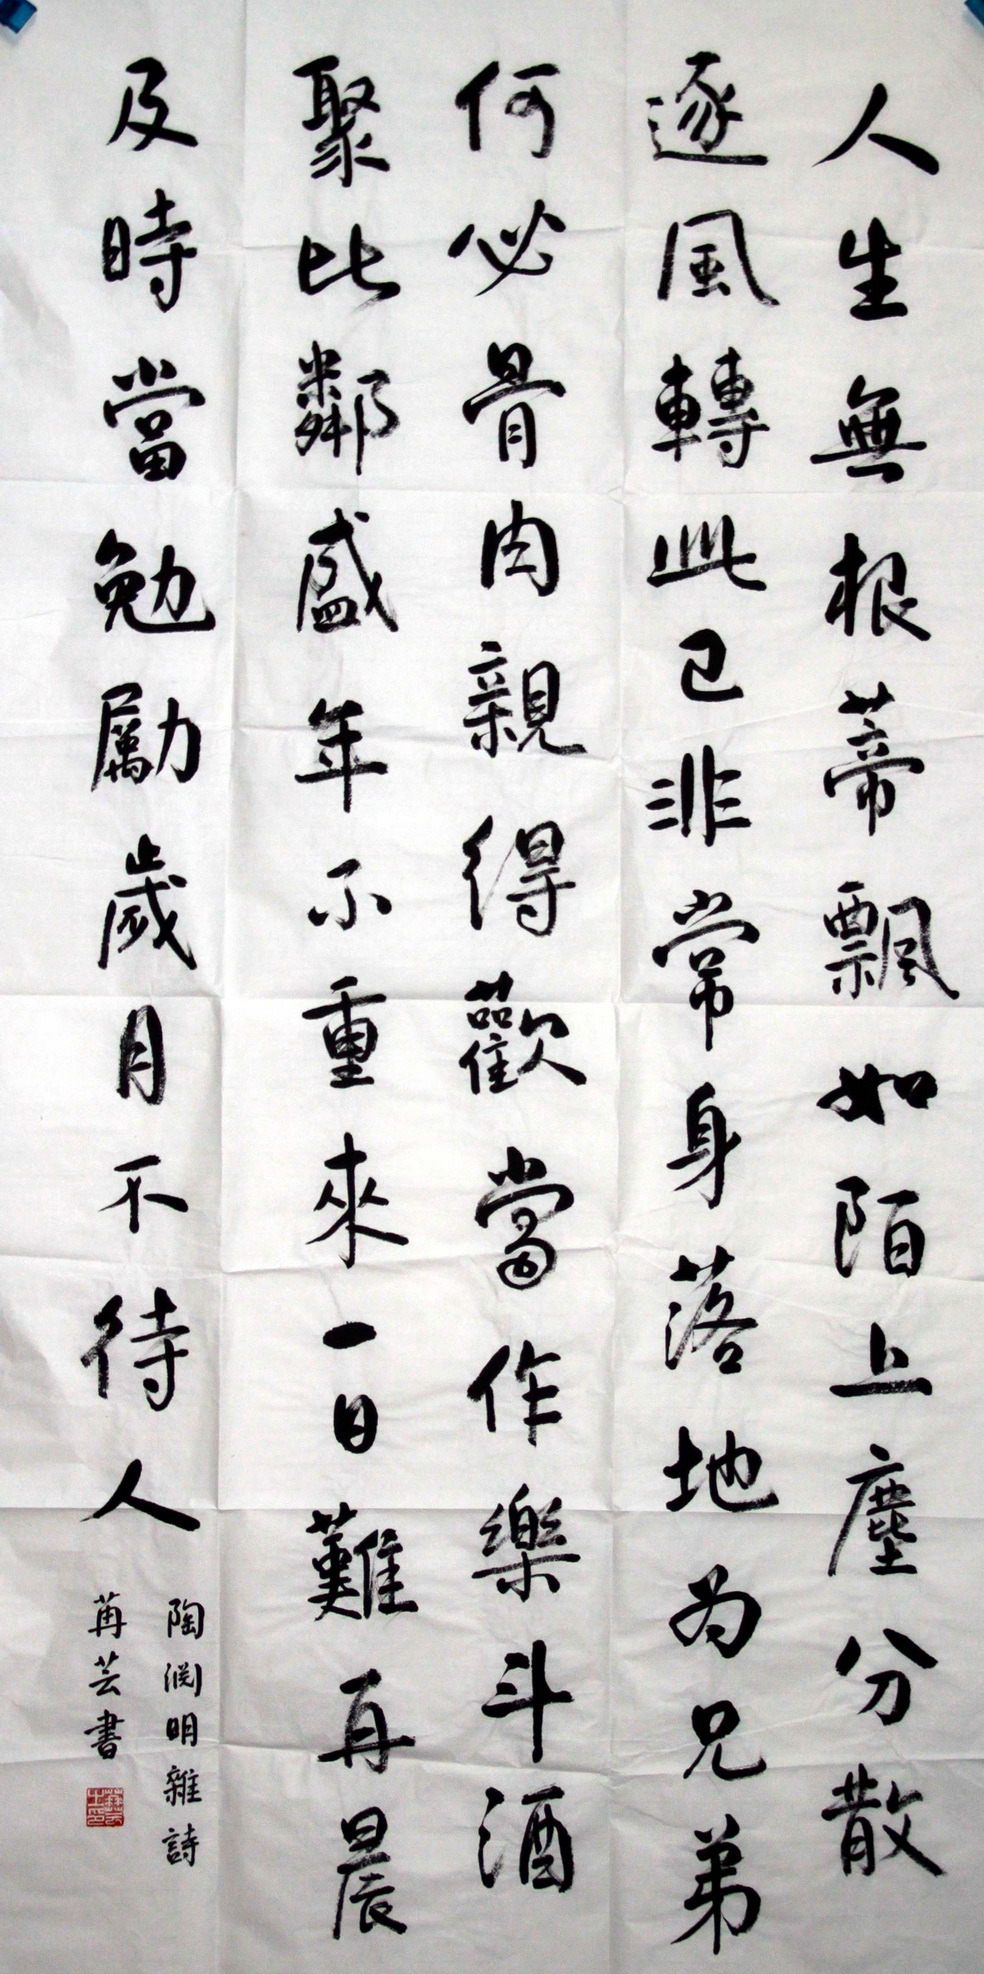 人生無根蒂飄如陌上塵分散
逐風轉此已非常身落地為兄弟
何必骨肉親得歡當作樂斗酒
聚比鄰盛年不重來一日難再晨
及時當勉勵歲月不待人
陶淵明雜詩
苒芸書